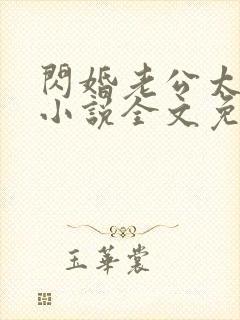 閃婚老公太
小說全文免
玉華裳